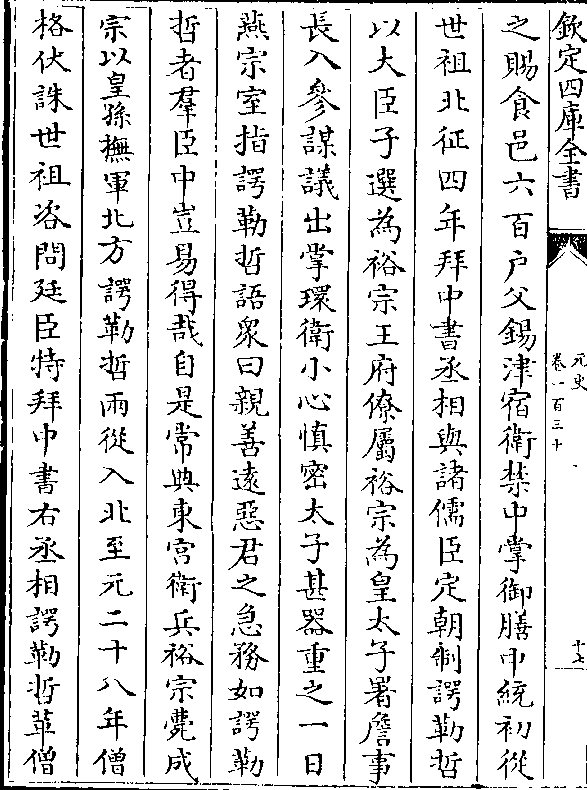 欽定四庫全書
元史
卷一百三十
十七
之賜食邑六百户父錫津宿衛禁中掌御膳中統初從
世祖北征四年拜中書丞相與諸儒臣定朝制諤勒哲
以大臣子選為裕宗王府僚屬裕宗為皇太子署詹事
長入參謀議出掌環衛小心慎密太子甚器重之一日
燕宗室指諤勒哲語衆曰親善逺惡君之急務如諤勒
哲者羣臣中豈易得哉自是常典東宫衛兵裕宗薨成
宗以皇孫撫軍北方諤勒哲兩從入北至元二十八年僧
格伏誅世祖咨問廷臣特拜中書右丞相諤勒哲革僧